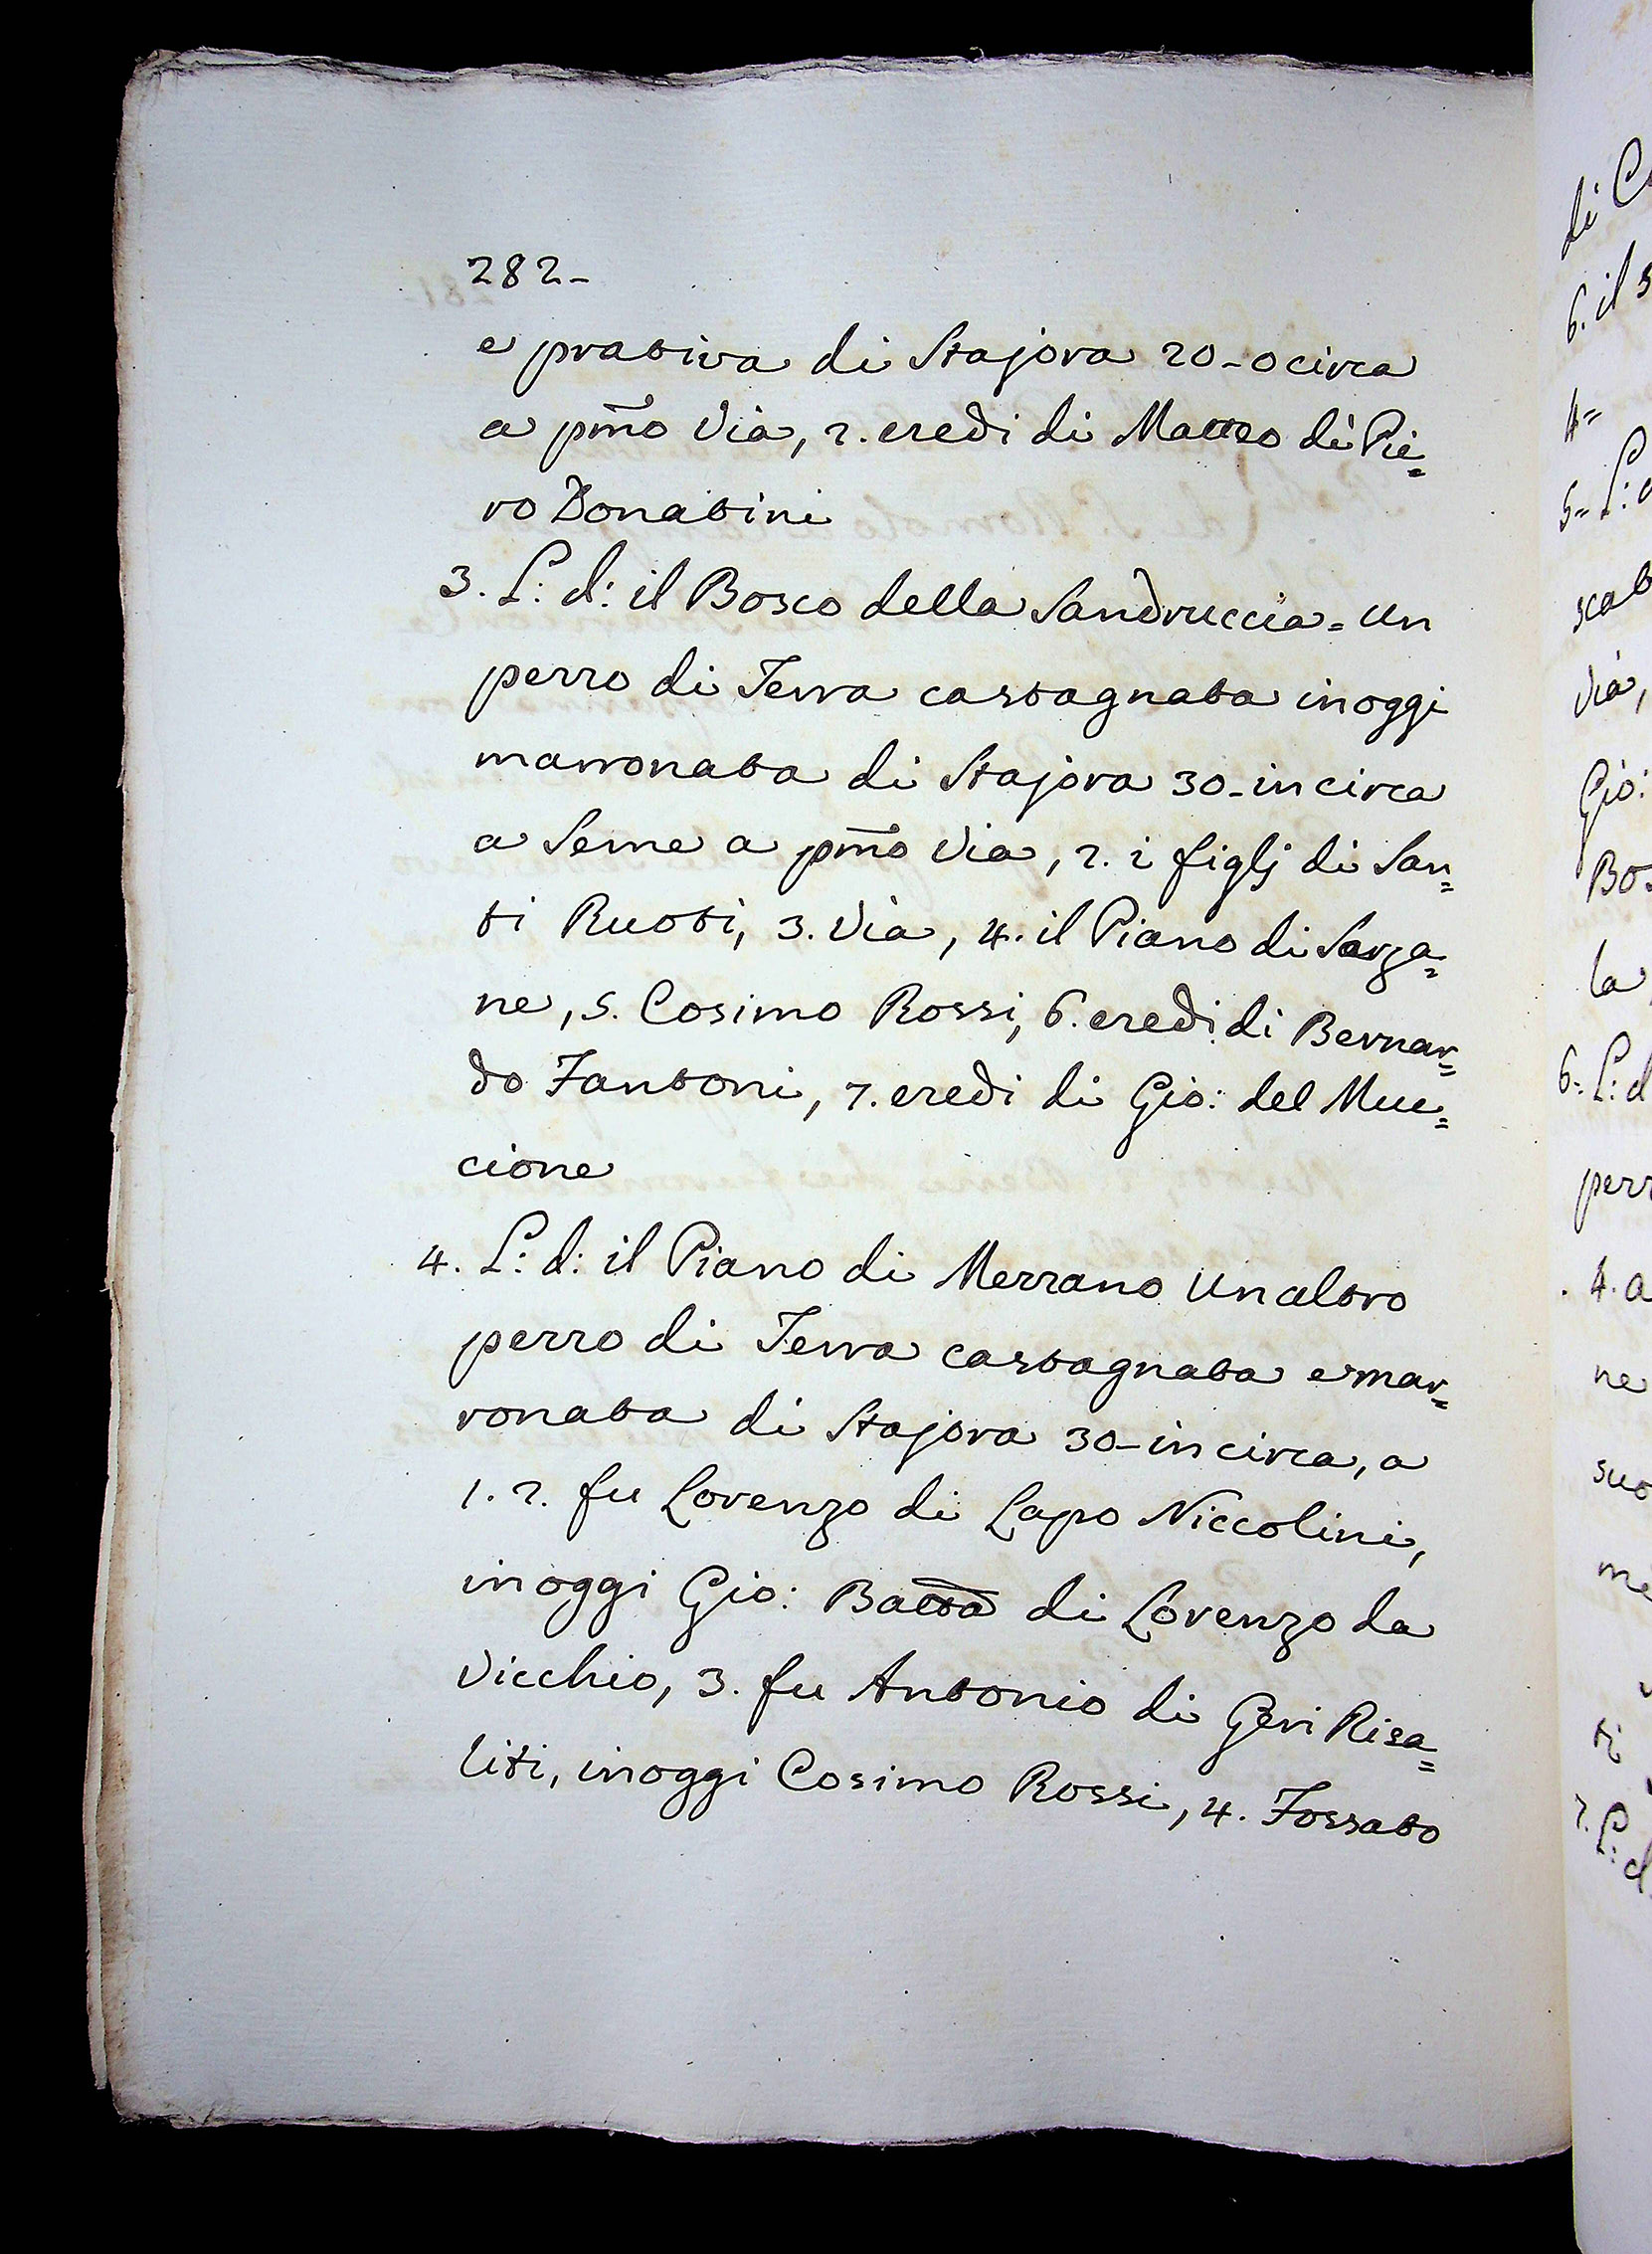 282-
e prativa di Stajora 20-0 circa
a pmo Via, 2. eredi di Matteo di Pie=
ro Donatini
3. L: d: il Bosco della Sandruccia= un
pezzo di Terra castagnata in oggi
marronata di Stajora 30- in circa
a Seme a pmo Via, 2. i figlj di San=
ti Ruoti, 3. Via, 4. il Piano di Sarza=
ne, 5. Cosimo Rossi, 6. eredi di Bernar=
do Fantoni, 7. eredi di Gio: del Muc=
cione
4. L: d: il Piano di Mezzano un altro
pezzo di Terra castagnata e mar=
ronata di Stajora 30- in circa, a
1. 2. fu Lorenzo di Lapo Niccolini,
in oggi Gio: Batta di Lorenzo da
Vicchio, 3. fu Antonio di Geri Risa=
liti, in oggi Cosimo Rossi, 4. Fossato
di
6. il
4=
5= L:
Via,
Gio:
la
6= L: d
4. a
ne
ti
7. L: d